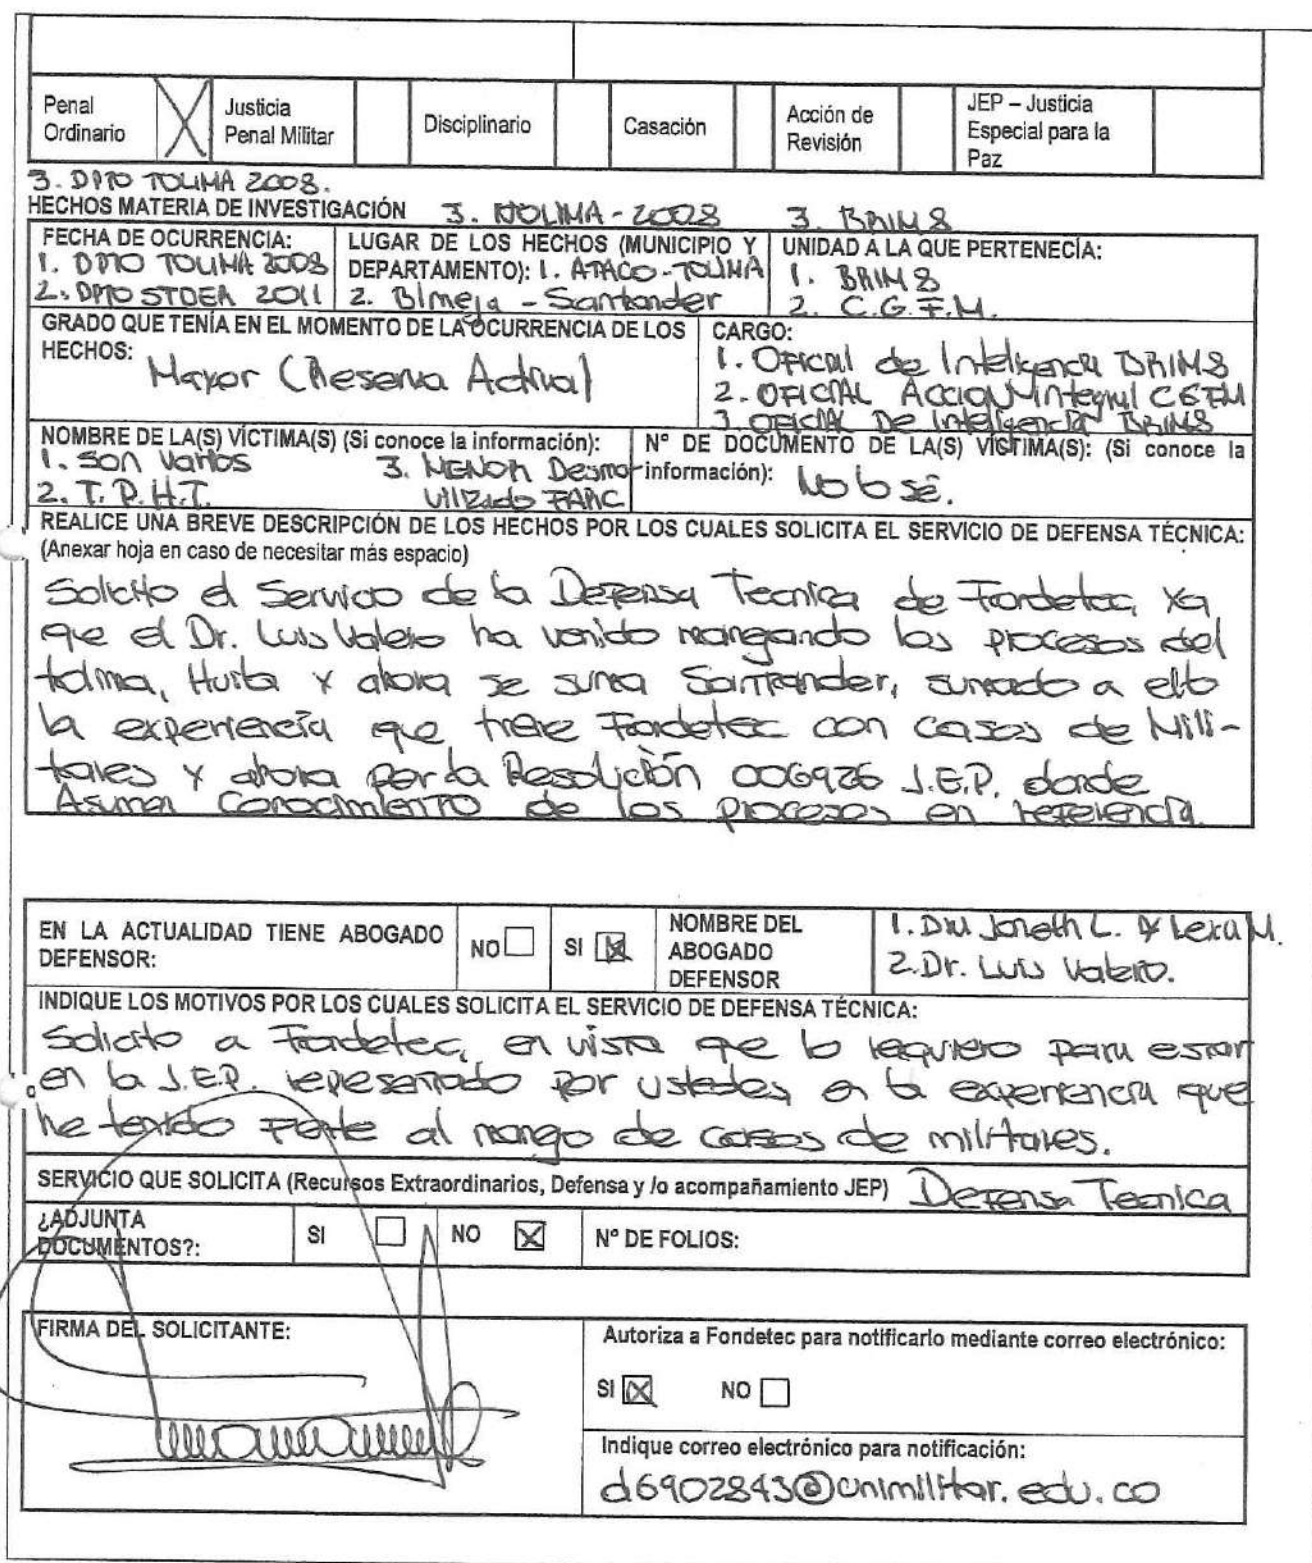 Penal Ordinario X Justicia Penal Militar Disciplinario Casación Acción de Revisión JEP – Justicia Especial para la Paz
3. DPTO TOLIMA 2008.
HECHOS MATERIA DE INVESTIGACIÓN 3. TOLIMA - 2008 3. BRIM 8
FECHA DE OCURRENCIA:
1. DPTO TOLIMA 2008
2. DPTO STDER 2011
LUGAR DE LOS HECHOS (MUNICIPIO Y
DEPARTAMENTO): 1. ATACO - TOLIMA
2. B/meja - Santander
UNIDAD A LA QUE PERTENECÍA:
1. BRIM 8
2. C.G.F.M.
GRADO QUE TENÍA EN EL MOMENTO DE LA OCURRENCIA DE LOS
HECHOS: Mayor (Reserva Activa)
CARGO:
1. Oficial de Inteligencia BRIM8
2. OFICIAL Acción Integral CGFM
3. OFICIAL De Inteligencia BRIM8
NOMBRE DE LA(S) VÍCTIMA(S) (Si conoce la información):
1. Son Varios 3. MENOR Desmo-
2. T.P.H.T. vilizado FARC
N° DE DOCUMENTO DE LA(S) VÍCTIMA(S): (Si conoce la
información): No lo sé.
REALICE UNA BREVE DESCRIPCIÓN DE LOS HECHOS POR LOS CUALES SOLICITA EL SERVICIO DE DEFENSA TÉCNICA:
(Anexar hoja en caso de necesitar más espacio)
Solicito el Servicio de la Defensa Tecnica de Fondetec, ya
que el Dr. Luis Valero ha venido manejando los procesos del
tolima, Huila y ahora se suma Santander, sumado a ello
la experiencia que tiene Fondetec con casos de Mili-
tares y ahora por la Resolución 006926 J.E.P. donde
Asumen Conocimiento de los procesos en referencia.
EN LA ACTUALIDAD TIENE ABOGADO
DEFENSOR:
NO SI X
NOMBRE DEL
ABOGADO
DEFENSOR
1. Dra Joneth L. M.
2. Dr. Luis Valero.
INDIQUE LOS MOTIVOS POR LOS CUALES SOLICITA EL SERVICIO DE DEFENSA TÉCNICA:
Solicito a Fondetec, en vista que lo requiero para estar
en la J.E.P. representado por ustedes, en la experiencia que
he tenido frente al manejo de casos de militares.
SERVICIO QUE SOLICITA (Recursos Extraordinarios, Defensa y /o acompañamiento JEP) Defensa Tecnica
¿ADJUNTA
DOCUMENTOS?:
SI NO X N° DE FOLIOS:
FIRMA DEL SOLICITANTE:
Autoriza a Fondetec para notificarlo mediante correo electrónico:
SI X NO
Indique correo electrónico para notificación:
d6902843@unimilitar.edu.co